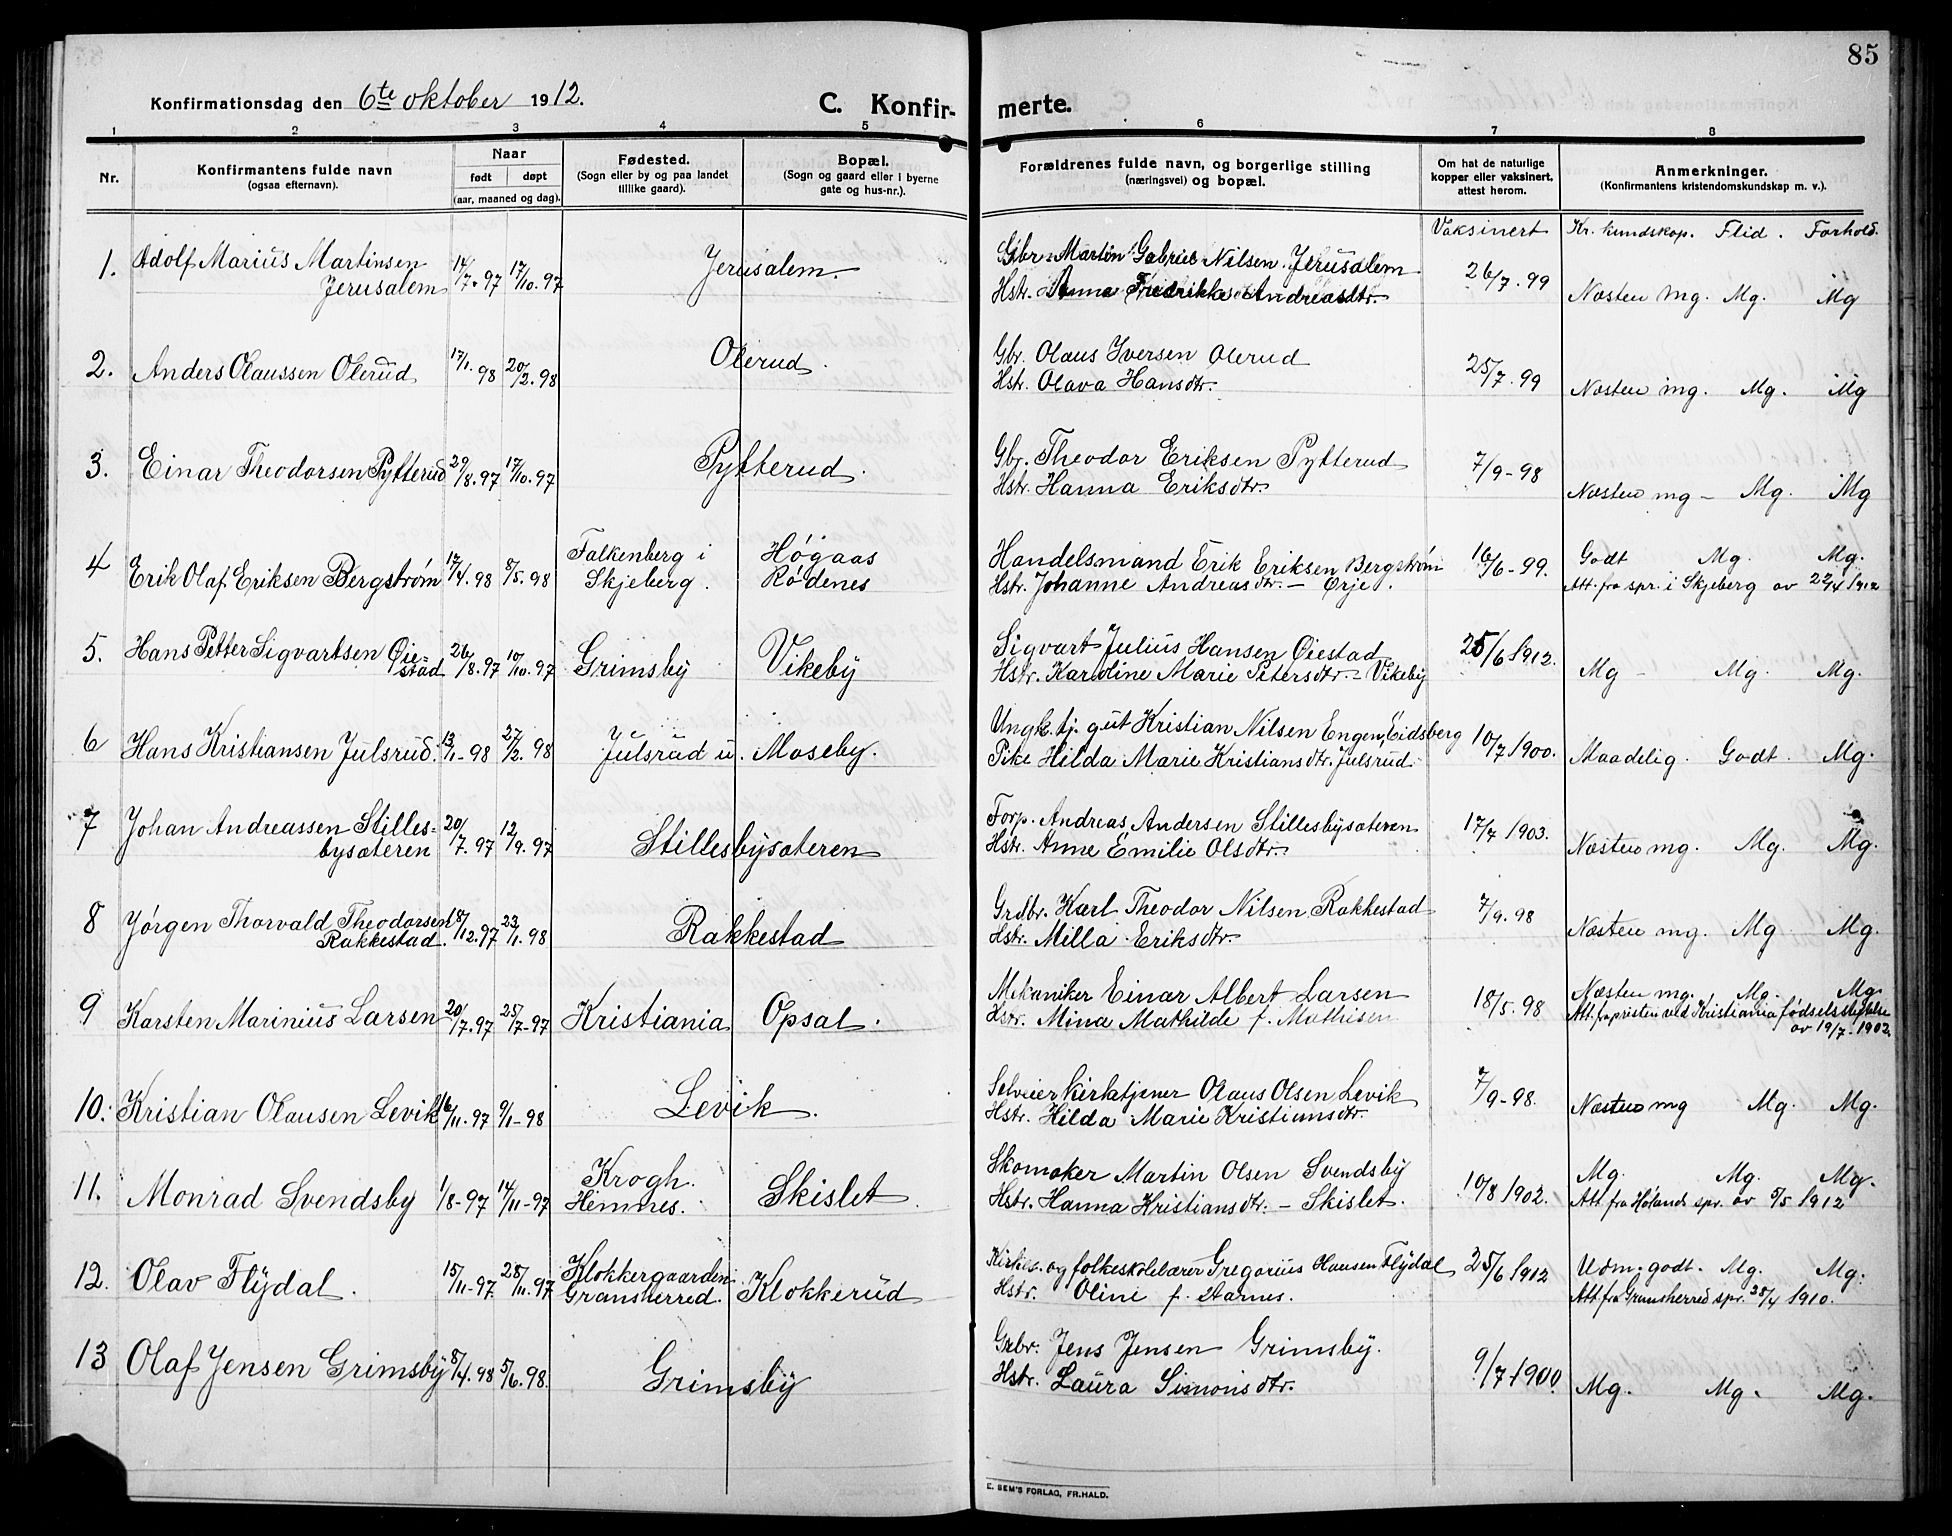 85
Konfirmationsdag den 6te oktober 1912.
C. Konfirmerte.
1 2 3 4 5 6 7 8
Nr.
Konfirmantens fulde navn
(ogsaa efternavn).
Naar
født døpt
(aar, maaned og dag).
Fødested.
(Sogn eller by og paa landet
tillike gaard).
Bopæl.
(Sogn og gaard eller i byerne
gate og hus-nr.).
Forældrenes fulde navn, og borgerlige stilling
(næringsvei) og bopæl.
Om hat de naturlige
kopper eller vaksinert,
attest herom.
Anmerkninger.
(Konfirmantens kristendomskundskap m. v.).
Vaksinert Kr. kundskap. Flid. Forhold.
1. Adolf Marius Martinsen
Jerusalem 14/7.97 17/10.97 Jerusalem.
Gbr. Martin Gabriel Nilsen Jerusalem
Hstr. Anna Fredrikke Andreasdtr.
26/7.99 Næsten mg. Mg. Mg
2. Anders Olaussen Olerud 17/1.98 20/2.98 Olerud.
Gbr. Olaus Iversen Olerud
Hstr. Olava Hansdtr.
25/7.99 Næsten mg. Mg. Mg
3. Einar Theodorsen Pytterud 29/8.97 17/10.97 Pytterud.
Gbr. Theodor Eriksen Pytterud
Hstr. Hanna Eriksdtr.
7/9-98 Næsten mg - Mg. Mg
4 Erik Olaf Eriksen Bergstrøm 17/4.98 8/5.98
Falkenberg i
Skjeberg.
Høgaas
Rødenes
Handelsmand Erik Eriksen Bergstrøm
Hstr. Johanne Andreasdtr. - Ørje.
16/6-99. Godt Mg. Mg.
Att. fra spr. i Skjeberg av 22/4 1912
5. Hans Petter Sigvartsen Øiestad 26/8.97 10/10.97 Grimsby Vikeby
Sigvart Julius Hansen Øiestad
Hstr. Karoline Marie Petersdtr. - Vikeby
25/6 1912. Mg - Mg. Mg.
6 Hans Kristiansen Julsrud. 13/1-98 27/2.98 Julsrud u. Moseby.
Ungk. tj. gut Kristian Nilsen Engen, Eidsberg
Pike Hilda Marie Kristiansdtr. Julsrud.
10/7 1900. Maadelig. Godt. Mg.
7 Johan Andreassen Stilles=
bysæteren 20/7.97 12/9.97 Stillesbysæteren
Forp. Andreas Andersen Stillesbysæteren
Hstr. Anne Emilie Olsdtr.
17/7 1903. Næsten mg. Mg. Mg.
8 Jørgen Thorvald Theodorsen
Rakkestad. 18/12.97 23/1.98 Rakkestad
Grdbr. Karl Theodor Nilsen Rakkestad
Hstr. Milla Eriksdtr.
7/9.98 Næsten mg. Mg Mg.
9 Karsten Marinius Larsen 20/7.97 25/7-97 Kristiania Opsal.
Mekaniker Einar Albert Larsen
Hstr. Mina Mathilde f. Mathisen
18/5.98 Næsten mg. Mg. Mg
Att. fra presten ved Kristiania fødselsstiftelse
av 19/7-1902.
10. Kristian Olausen Levik 16/11.97 9/1-98 Levik.
Selveier Kirketjener Olaus Olsen Levik
Hstr. Hilda Marie Kristiansdtr.
7/9-98. Næsten mg Mg. Mg.
11. Monrad Svendsby 1/8-97 14/11-97
Krogh.
Hemnes.
Skislet.
Skomaker Martin Olsen Svendsby
Hstr. Hanna Kristiansdtr. - Skislet.
10/8 1902. Mg. Mg. Mg.
Att fra Hølands spr. av 5/5 1912
12. Olav Flydal. 15/11-97. 28/11.97
Klokkergaarden
Gransherred.
Klokkerud
Kirkes. og folkeskolelærer Gregorius Hansen Flydal
Hstr. Oline f. Aarnes.
25/6 1912 Udm. godt. Mg. Mg.
Att. fra Gransherred spr. 25/4 1910.
13 Olaf Jensen Grimsby 8/4.98 5/6.98. Grimsby
Grbr. Jens Jensen Grimsby.
Hstr. Laura Simonsdtr.
9/7 1900 Mg. Mg. Mg.
E. SEM'S FORLAG, FR.HALD.